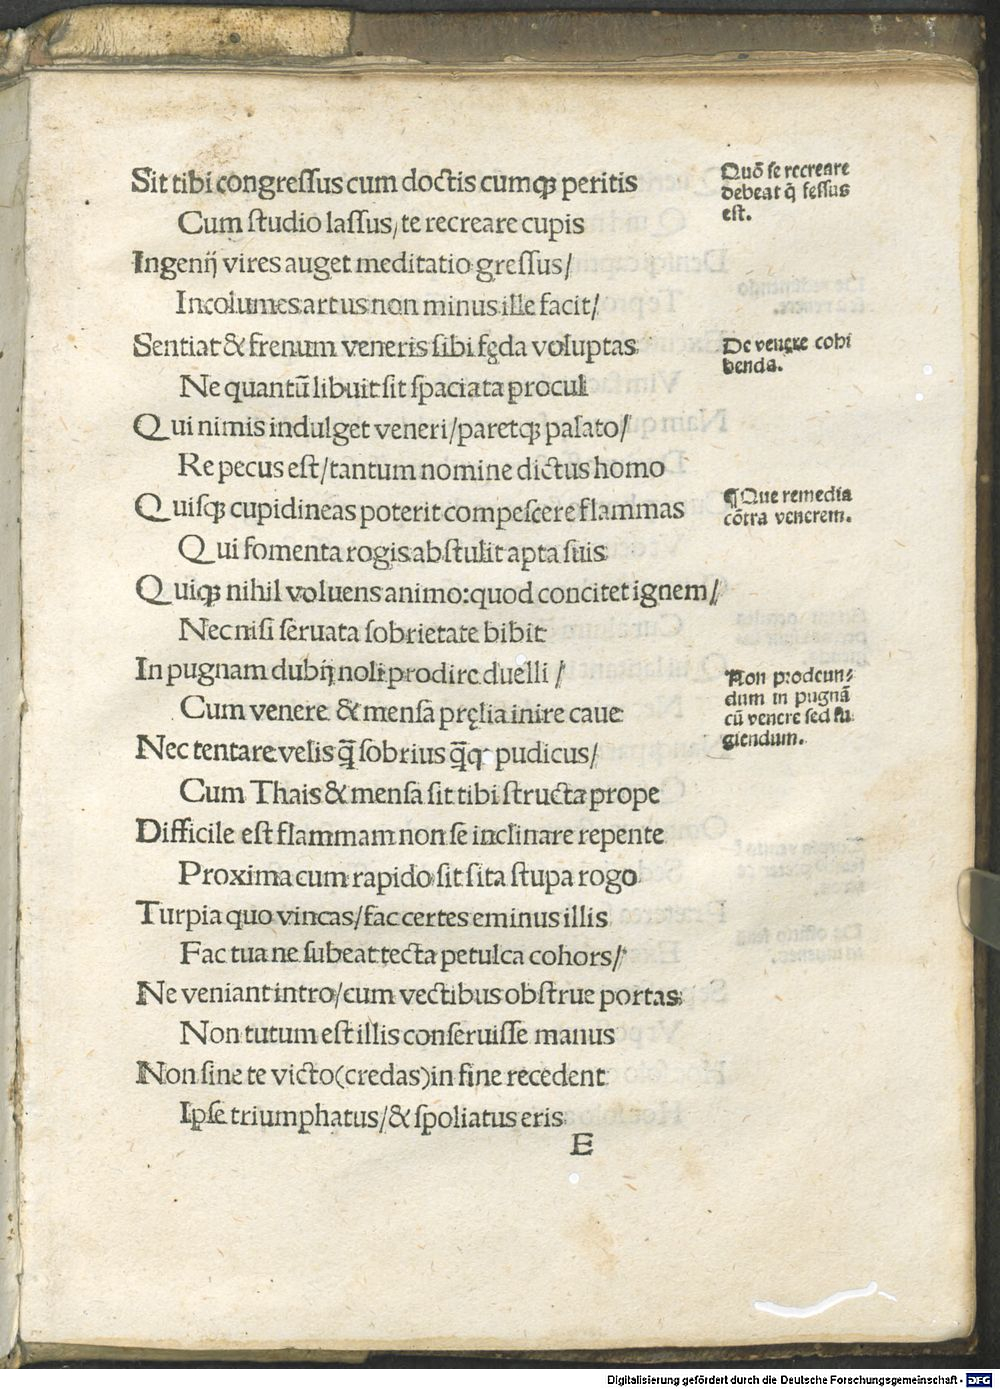 Sit tibi congreſſus cum doctis cumqꝫ peritis
Cum ſtudio laſſus, te recreare cupis
Ingenij vires auget meditatio greſſus/
Incolumes artus non minus ille facit/
Sentiat & frenum veneris ſibi fęda voluptas
Ne quantū libuit ſit ſpaciata procul
Qui nimis indulget veneri/paretqꝫ palato/
Re pecus eſt/tantum nomine dictus homo
Quiſqꝫ cupidineas poterit compeſcere flammas
Qui fomenta rogis abſtulit apta ſuis
Quiqꝫ nihil voluens animo:quod concitet ignem/
Nec niſi ſeruata ſobrietate bibit
In pugnam dubij noli prodire duelli /
Cum venere & menſa pręlia inire caue
Nec tentare velis q̄ ſobrius q̄qꝫ pudicus/
Cum Thais & menſa ſit tibi ſtructa prope
Difficile eſt flammam non ſe inclinare repente
Proxima cum rapido ſit ſita ſtupa rogo
Turpia quo vincas/fac certes eminus illis
Fac tua ne ſubeat tecta petulca cohors/
Ne veniant intro/cum vectibus obſtrue portas
Non tutum eſt illis conſeruiſſe manus
Non ſine te victo(credas)in fine recedent
Ipſe triumphatus/& ſpoliatus eris
E
Quō ſe recreare
debeat q̄ feſſus
eſt.
De venere cohi
benda.
¶ Que remedia
cōtra venerem.
Non prodeun⸗
dum in pugnā
cū venere ſed fu
giendum.
Digitalisierung gefördert durch die Deutsche Forschungsgemeinschaft - DFG